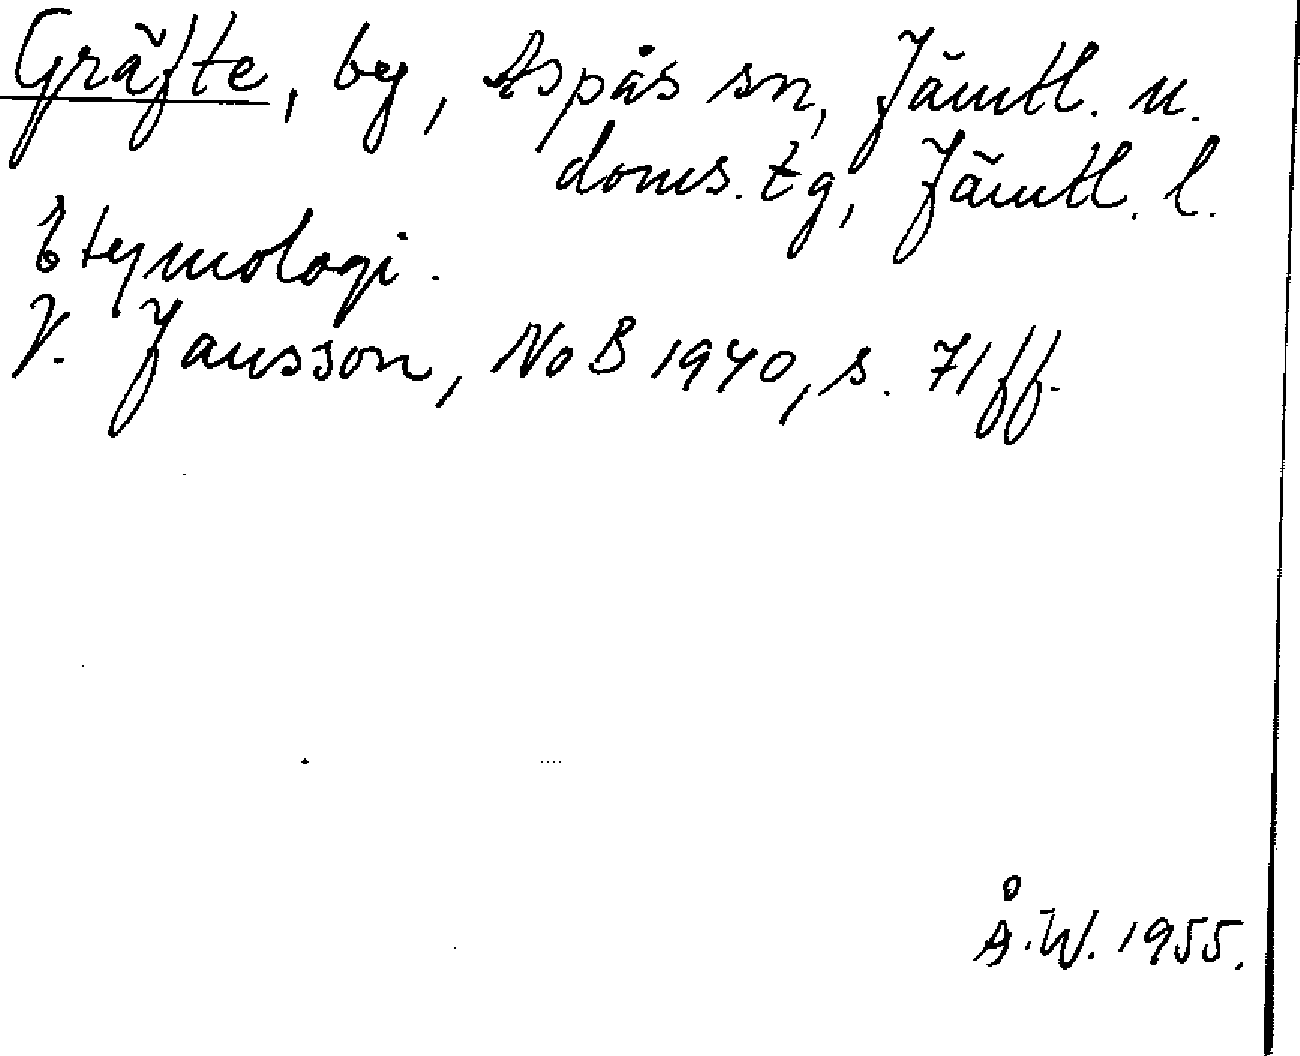 Gräfte, by, Aspås sn, Jämtl. n.
doms. tg, Jämtl. l.
Etymologi.
V. Jansson, NoB 1940, s. 71 ff.
Å.W. 1955.